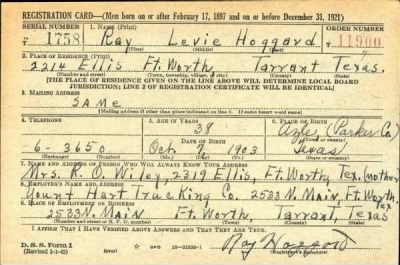 REGISTRATION CARD—(Men born on or after February 17, 1897 and on or before December 31, 1921)
SERIAL NUMBER 1. NAME (Print) ORDER NUMBER
S 1758 Ray Levie Hoggard 11900
(First) (Middle) (Last)
2. PLACE OF RESIDENCE (Print)
2314 Ellis Ft. Worth, Tarrant Texas.
(Number and street) (Town, township, village, or city) (County) (State)
[THE PLACE OF RESIDENCE GIVEN ON THE LINE ABOVE WILL DETERMINE LOCAL BOARD
JURISDICTION; LINE 2 OF REGISTRATION CERTIFICATE WILL BE IDENTICAL]
3. MAILING ADDRESS
SAME
[Mailing address if other than place indicated on line 2. If same insert word same]
4. TELEPHONE 5. AGE IN YEARS 6. PLACE OF BIRTH
38 Azle (Parker Co)
DATE OF BIRTH
6-3650 Oct. 7, 1903 Texas
7. NAME AND ADDRESS OF PERSON WHO WILL ALWAYS KNOW YOUR ADDRESS
Mrs. R. O. Wiley, 2319 Ellis, Ft. Worth, Tex. (mother
8. EMPLOYER'S NAME AND ADDRESS
Yount Hart Trucking Co. 2533 N. Main, Ft. Worth, Tex.
9. PLACE OF EMPLOYMENT OR BUSINESS
2533 N. Main Ft. Worth, Tarrant, Texas
(Number and street or R. F. D. number) (Town) (County) (State)
I AFFIRM THAT I HAVE VERIFIED ABOVE ANSWERS AND THAT THEY ARE TRUE.
D. S. S. Form 1
(Revised 1-1-42) GPO Ray Hoggard